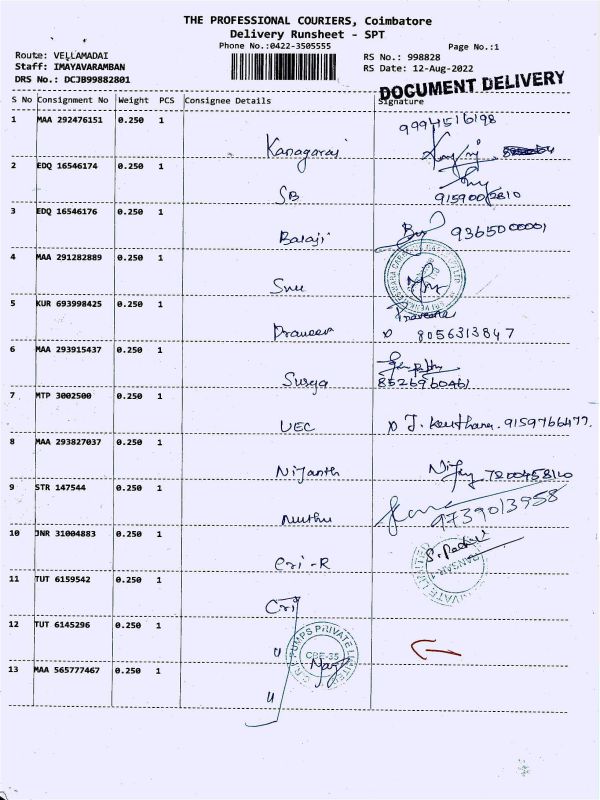 THE PROFESSIONAL COURIERS, Coimbatore
Delivery Runsheet - SPT
Phone No.:0422-3505555
Page No.:1
Route: VELLAMADAI
Staff: IMAYAVARAMBAN
DRS No.: DCJB99882801
RS No.: 998828
RS Date: 12-Aug-2022
DOCUMENT DELIVERY
S No Consignment No Weight PCS Consignee Details Signature
1 MAA 292476151 0.250 1 Kanagaraj 9994516198
2 EDQ 16546174 0.250 1 SB
3 EDQ 16546176 0.250 1 Balaji 9365000001
4 MAA 291282889 0.250 1
5 KUR 693998425 0.250 1 Praveen Praveena 8056313847
6 MAA 293915437 0.250 1 Surya 8526960461
7 MTP 3002500 0.250 1 UEC 9159766477.
8 MAA 293827037 0.250 1 Nijanth 7200458110
9 STR 147544 0.250 1 Muthu 9739013958
10 JNR 31004883 0.250 1 Cri-R
11 TUT 6159542 0.250 1 Cri
12 TUT 6145296 0.250 1 "
PUMPS PRIVATE LIMITED
CBE-35
13 MAA 565777467 0.250 1 "